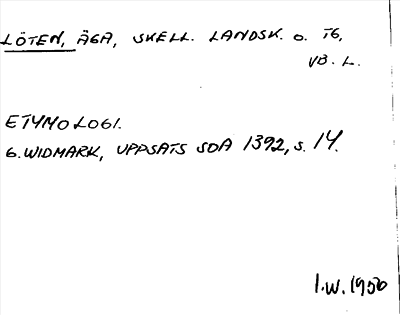 LÖTEN, ÄGA, SKELL. LANDSK. o. TG,
VB. L.
ETYMOLOGI.
G. WIDMARK, UPPSATS SOA 1392, s. 14.
I.W. 1956